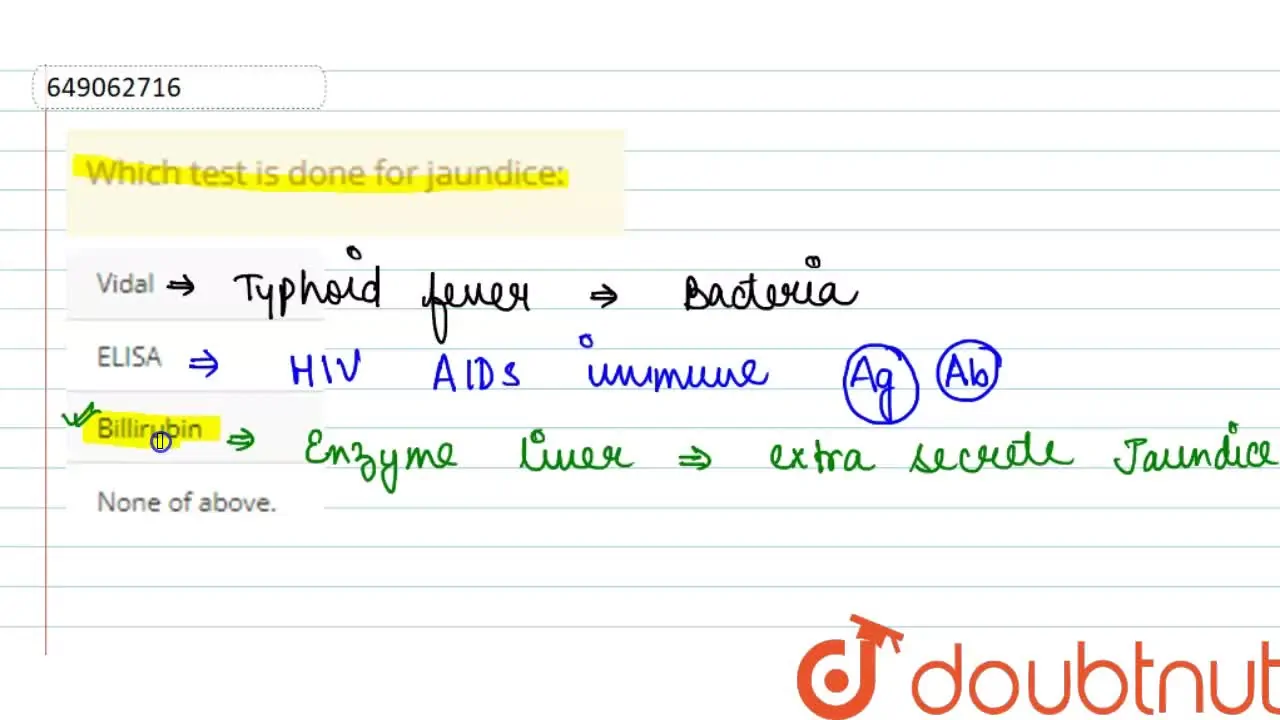 649062716
Which test is done for jaundice:
Vidal ⇒ Typhoid fever ⇒ Bacteria
ELISA ⇒ HIV AIDs immune Ag Ab
Billirubin ⇒ Enzyme liver ⇒ extra secrete Jaundice
None of above.
doubtnut